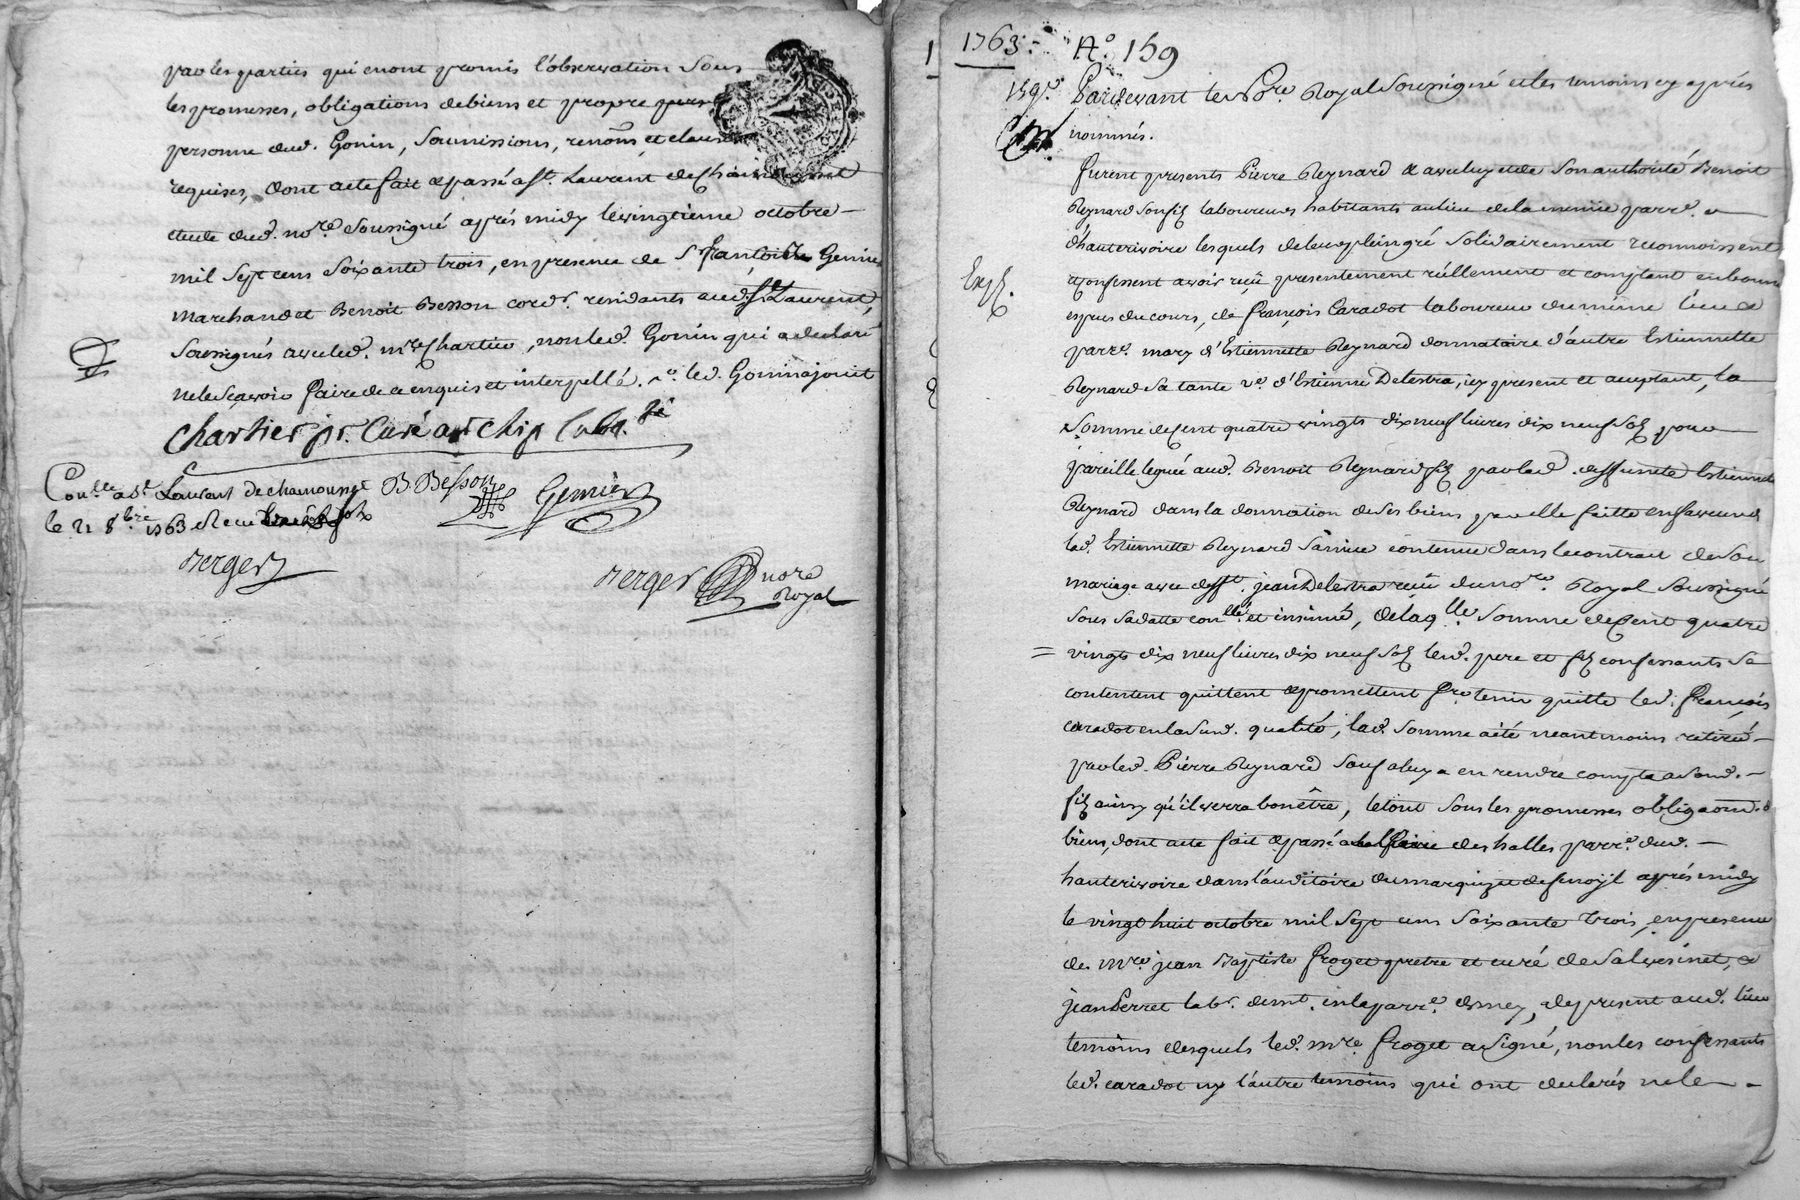 par les parties qui en ont promis l'observation sous
les promesses, obligations de biens et propre
personne dud. Gonin, soumissions, renons et clauses
requises, dont acte fait & passé a St. Laurent de Chamousset
etude dud. nore soussigné après midy le vingtieme octobre
mil sept cens soixante trois, en presence de Sr françois Genier
marchand et Benoit Besson cordr. residants aud. St Laurent,
soussignés avec led. mre Chartier, non led. Gonin qui a declaré
ne le sçavoir faire de ce enquis et interpellé.
chartier pr. Curé
Conlle a St Laurent de chamousset B. Besson Genier
le 21 8bre 1763 Recu
Berger
Berger nore
Royal
1763. No. 159
159e. Pardevant le Nore. Royal soussigné et les temoins cy après
nommés.
furent presents Pierre Reynard & avec luy et de son authorité Benoit
Reynard son filz laboureurs habitants au lieu de la même parre.
d'hauterivoire lesquels de leur plein gré solidairement reconnoissent
Exp.
& confessent avoir reçû presentement réellement et comptant en bonnes
especes du cours, de françois Caradot laboureur du même lieu &
parre. mary d'Estiennette Reynard donnataire d'autre Estiennette
Reynard sa tante ve. d'Estienne Delestra, icy present et acceptant, la
somme de Cent quatre vingts dix neuf livres dix neuf solz pour
pareille leguée aud. Benoit Reynard filz par lad. deffuncte Estiennette
Reynard dans la donnation de ses biens par elle faitte en faveur de
lad. Estiennette Reynard sa niece contenue dans le contrat de son
mariage avec defft. jean Delestra recû du nore. Royal soussigné
sous sa datte conllé et insinué, de laqlle somme de Cent quatre
= vingts dix neuf livres dix neuf solz lesd. pere et filz confessants se
contentent quittent & promettent fre tenir quitte led. françois
caradot en lasusd. qualité, lad. somme a été neantmoins retirée
par led. Pierre Reynard sauf a luy a en rendre compte a sond.
filz ainsy qu'il verra bon être, le tout sous les promesses obligaons de
biens, dont acte fait & passé a des halles parre. dud.
hauterivoire dans l'auditoire du marquizat de fenoyl après midy
le vingt huit octobre mil sept cens soixante trois, en presence
de mre. jean Baptiste froget pretre et curé de Salvesinet, &
jean Perret labr. demt. en la parre. de mey, de present aud. lieu
temoins desquels led. mre froget a signé, non les confessants
led. caradot ny l'autre temoins qui ont declarés ne le